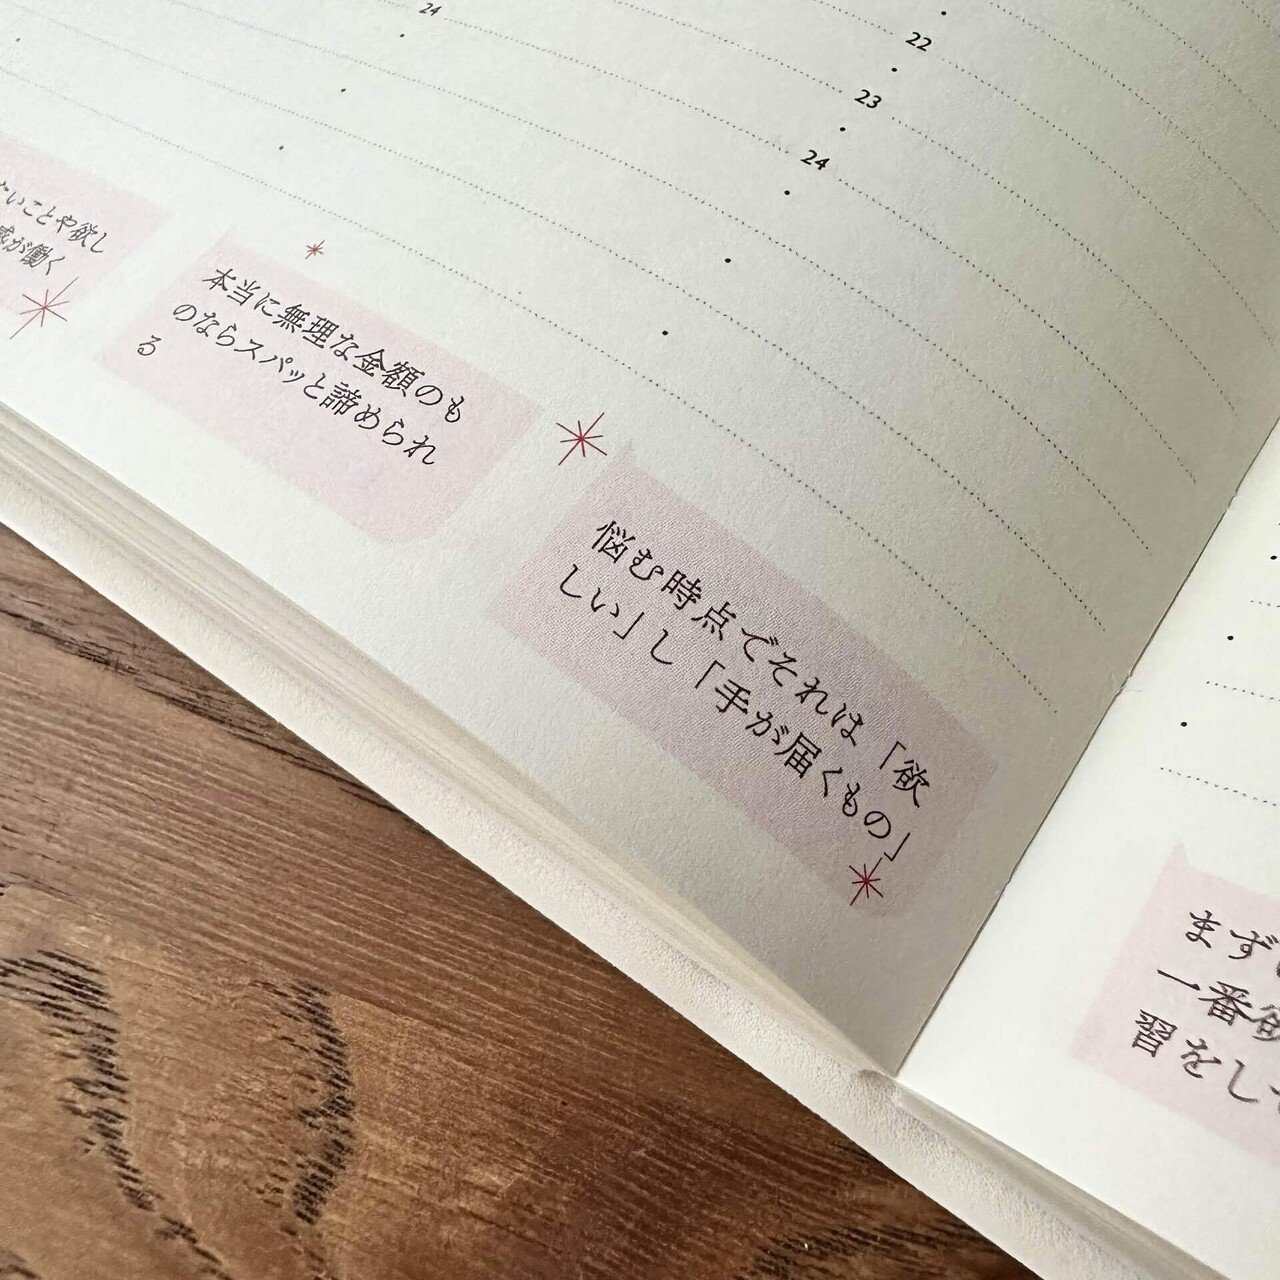 24
22
23
24
いことや欲し
感が働く
本当に無理な金額のも
のならスパッと諦められ
る
悩む時点でそれは「欲
しい」し「手が届くもの」
まず
一番欲
習をし